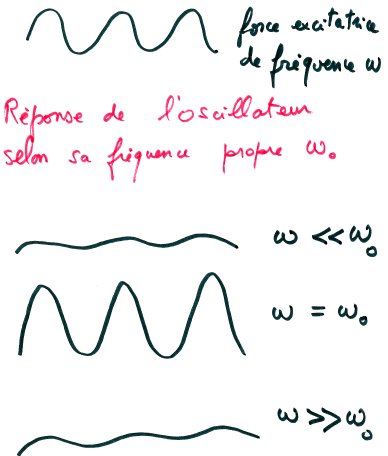 force excitatrice
de fréquence ω
Réponse de l'oscillateur
selon sa fréquence propre ω₀
ω << ω₀
ω = ω₀
ω >> ω₀